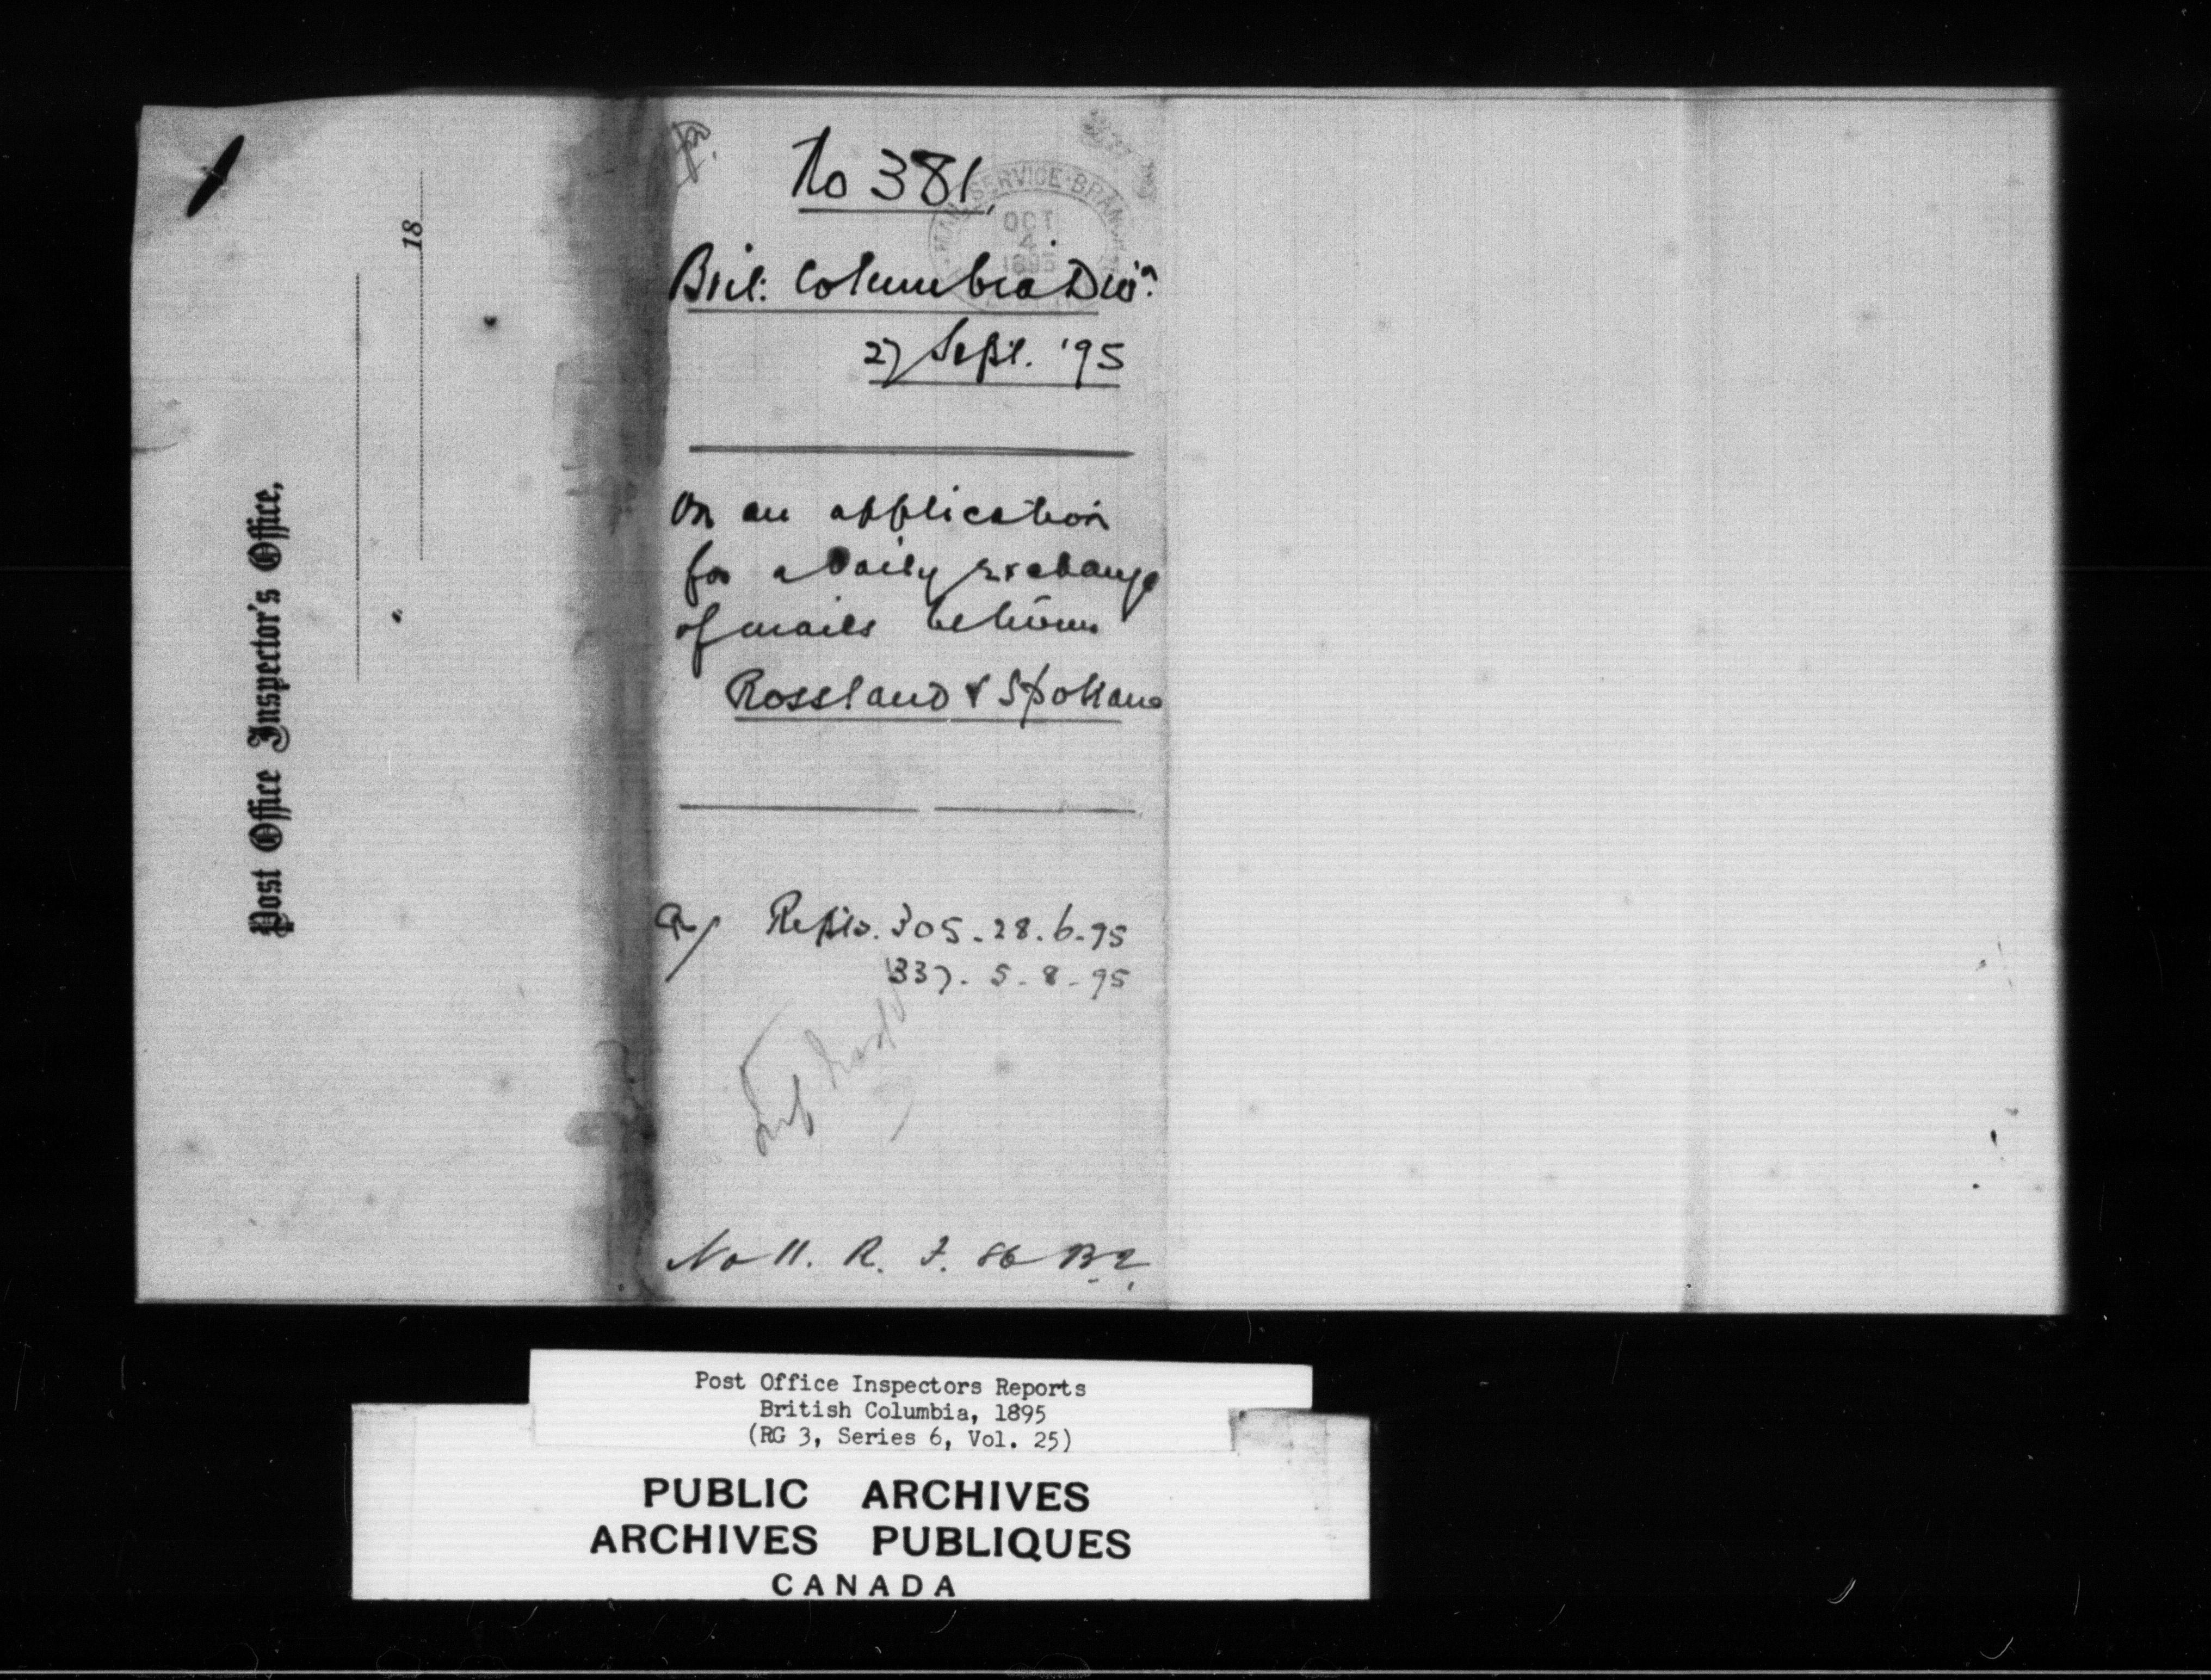 Post Office Inspector's Office,
18
No 381,
MAIL SERVICE BRANCH
OCT
4
1895
Brit: Columbia Divn.
27 Sept. '95
On an application
for a Daily exchange
of mails between
Rossland & Spokane
Repts. 305-28.6-95
337-5-8-95
No 11. R. F. 86 B2.
Post Office Inspectors Reports
British Columbia, 1895
(RG 3, Series 6, Vol. 25)
PUBLIC ARCHIVES
ARCHIVES PUBLIQUES
CANADA